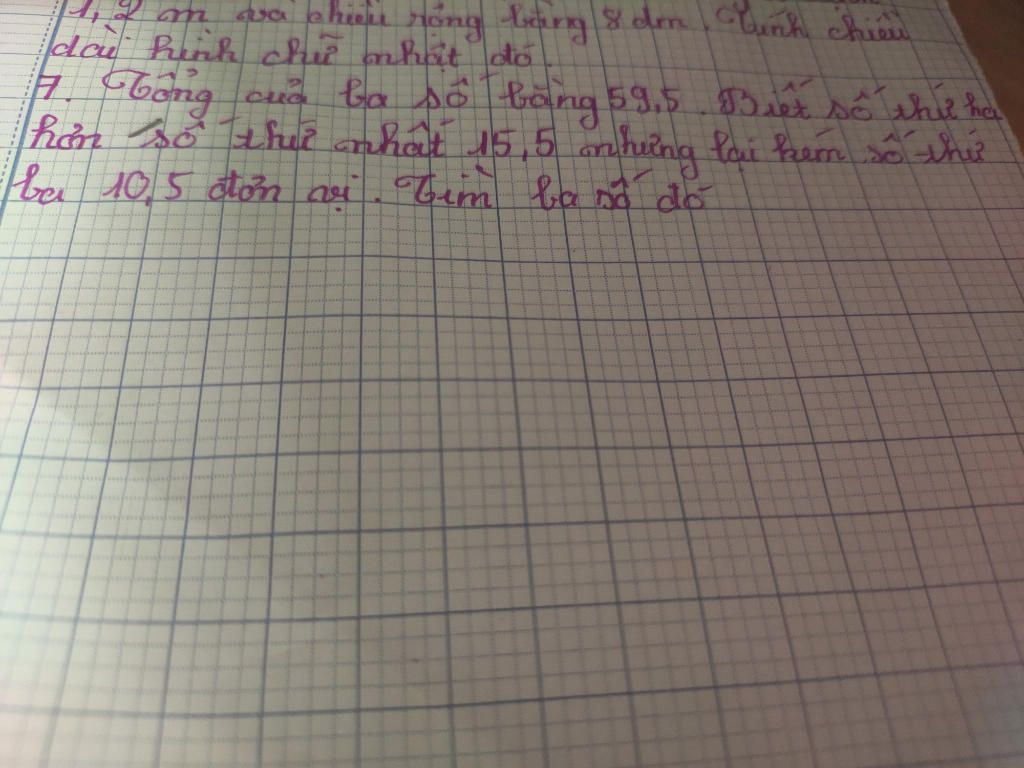 1,2 m và chiều rộng bằng 8 dm. Tính chiều
dài hình chữ nhật đó.
7. Tổng của ba số bằng 59,5. Biết số thứ hai
hơn số thứ nhất 15,5 nhưng lại kém số thứ
ba 10,5 đơn vị. Tìm ba số đó